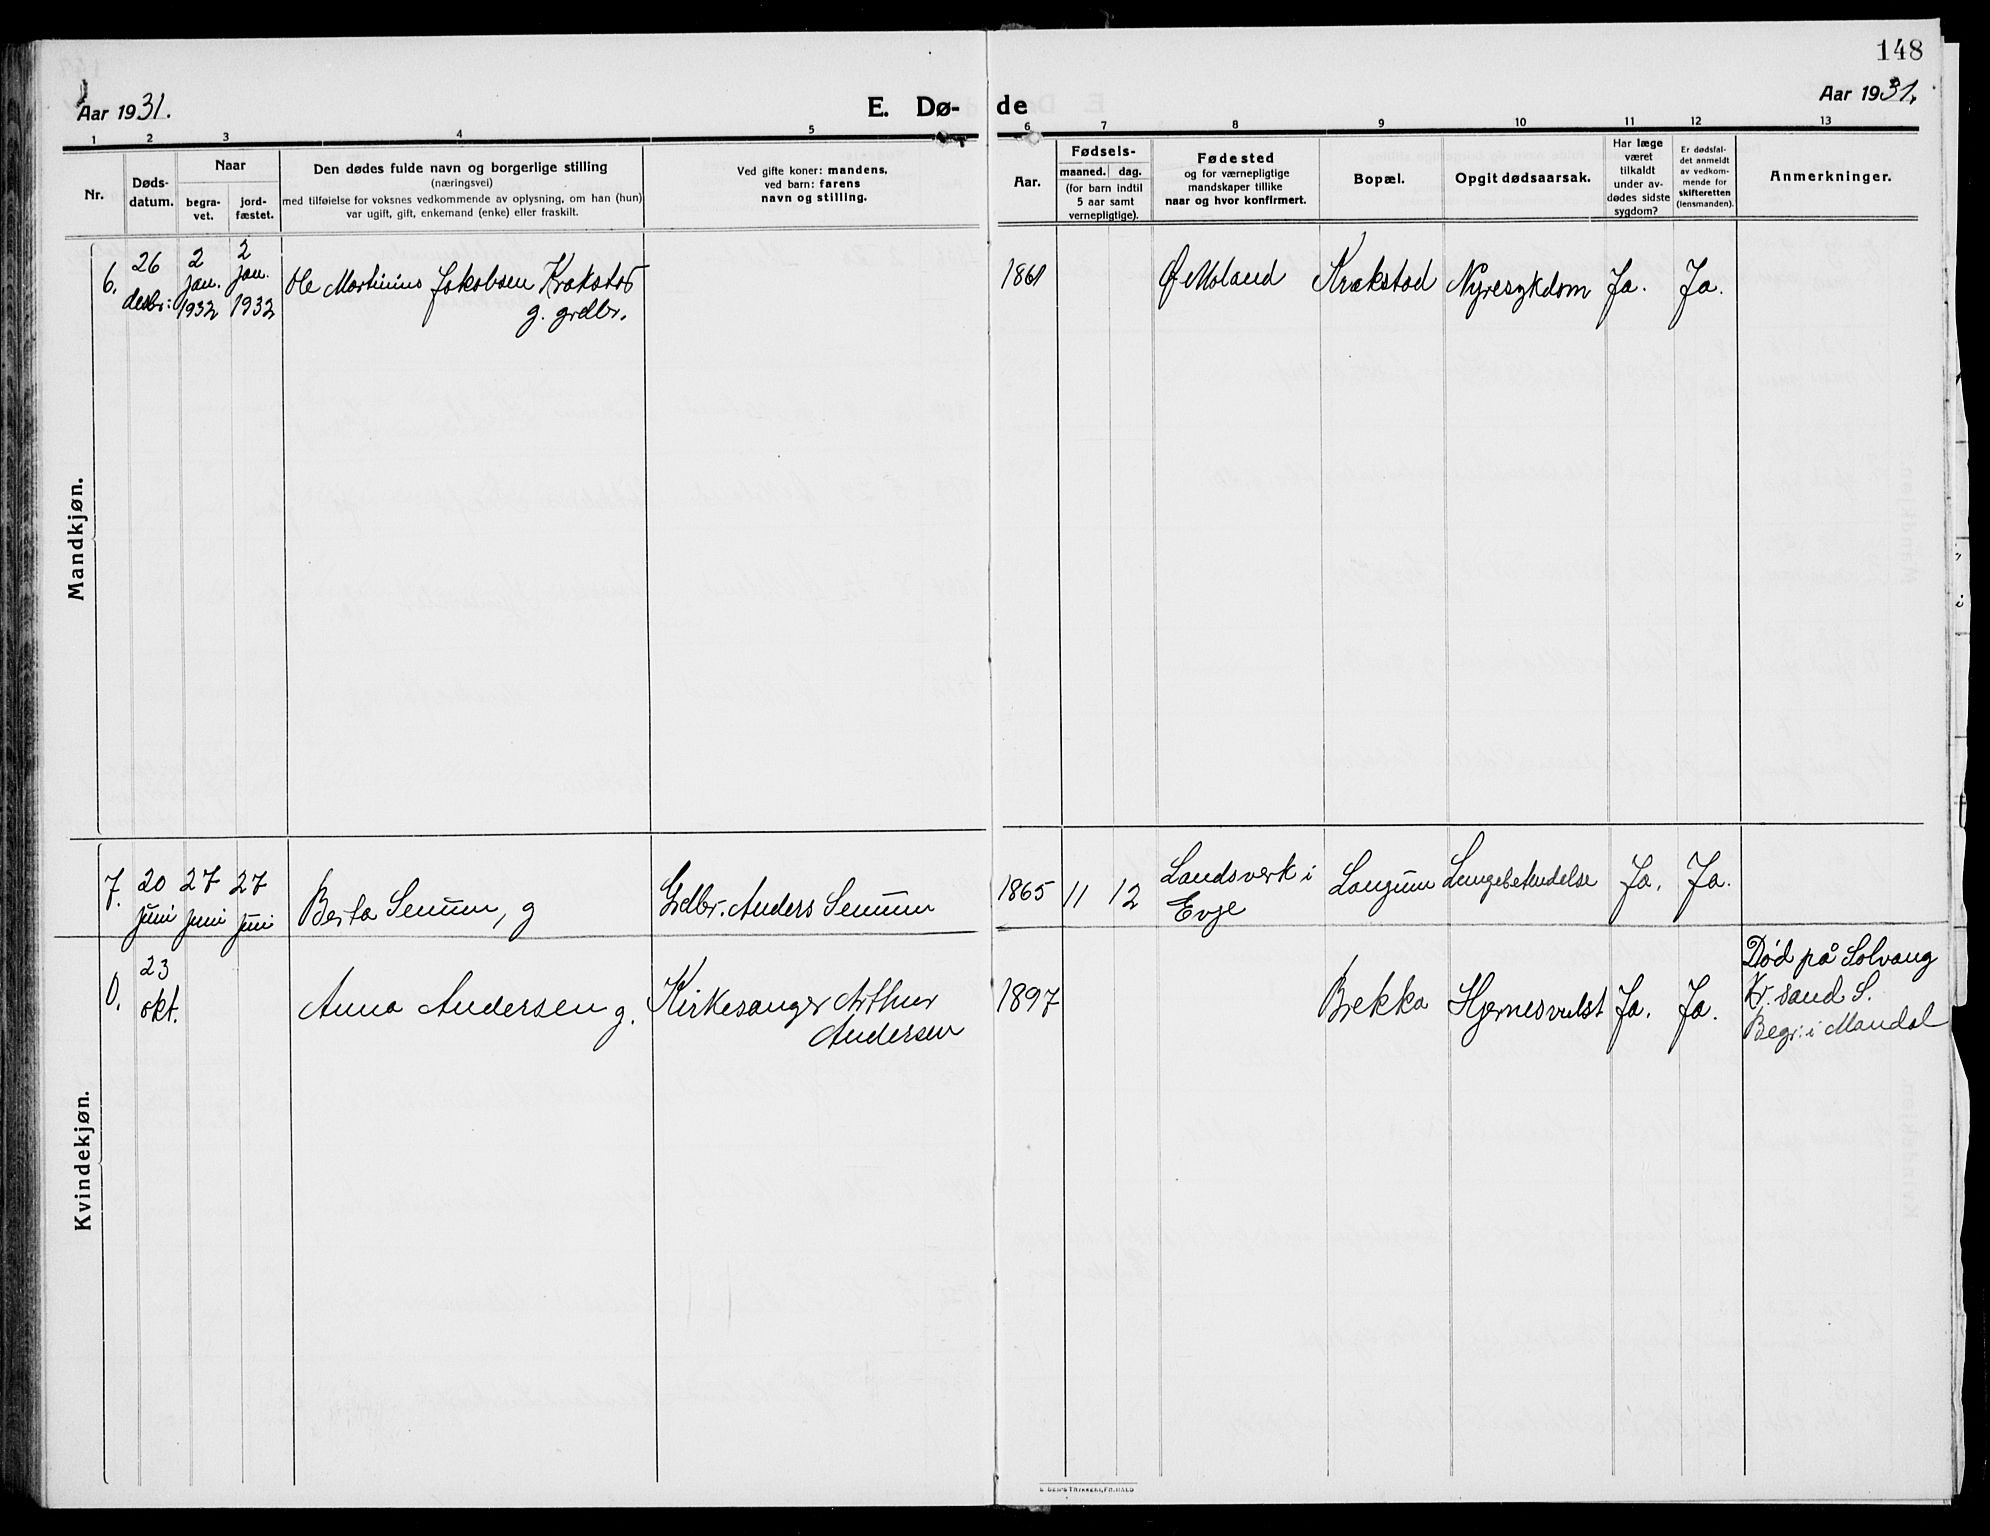 148
Aar 1931.
E. Dø-
de
Aar 1931.
1 2 3 4 5 6 7 8 9 10 11 12 13
Nr.
Døds-
datum.
Naar
begra-
vet.
jord-
fæstet.
Den dødes fulde navn og borgerlige stilling
(næringsvei)
med tilføielse for voksnes vedkommende av oplysning, om han (hun)
var ugift, gift, enkemand (enke) eller fraskilt.
Ved gifte koner: mandens,
ved barn: farens
navn og stilling.
Aar.
Fødsels-
maaned. dag.
(for barn indtil
5 aar samt
vernepligtige).
Fødested
og for værnepligtige
mandskaper tillike
naar og hvor konfirmert.
Bopæl.
Opgit dødsaarsak.
Har læge
været
tilkaldt
under av-
dødes sidste
sygdom?
Er dødsfal-
det anmeldt
av vedkom-
mende for
skifteretten
(lensmanden).
Anmerkninger.
Mandkjøn.
6.
26
desbr:
2
jan.
1932
2
jan.
1932
Ole Martinius Jakobsen Krakstad
g. grdbr.
1861
Ø. Moland
Krakstad
Nyresykdom
Ja.
Ja.
Kvindekjøn.
7.
20
juni
27
juni
27
juni
Berta Senum, g
Grdbr. Anders Senum
1865 11 12
Landsverk i
Evje
Langum
Lungebetendelse
Ja.
Ja.
0.
23
okt.
Anna Andersen g.
Kirkesanger Arthur
Andersen
1897
Brekka
Hjernesvulst
Ja.
Ja.
Død på Solvang
Kr. sand S.
Begr: i Mandal